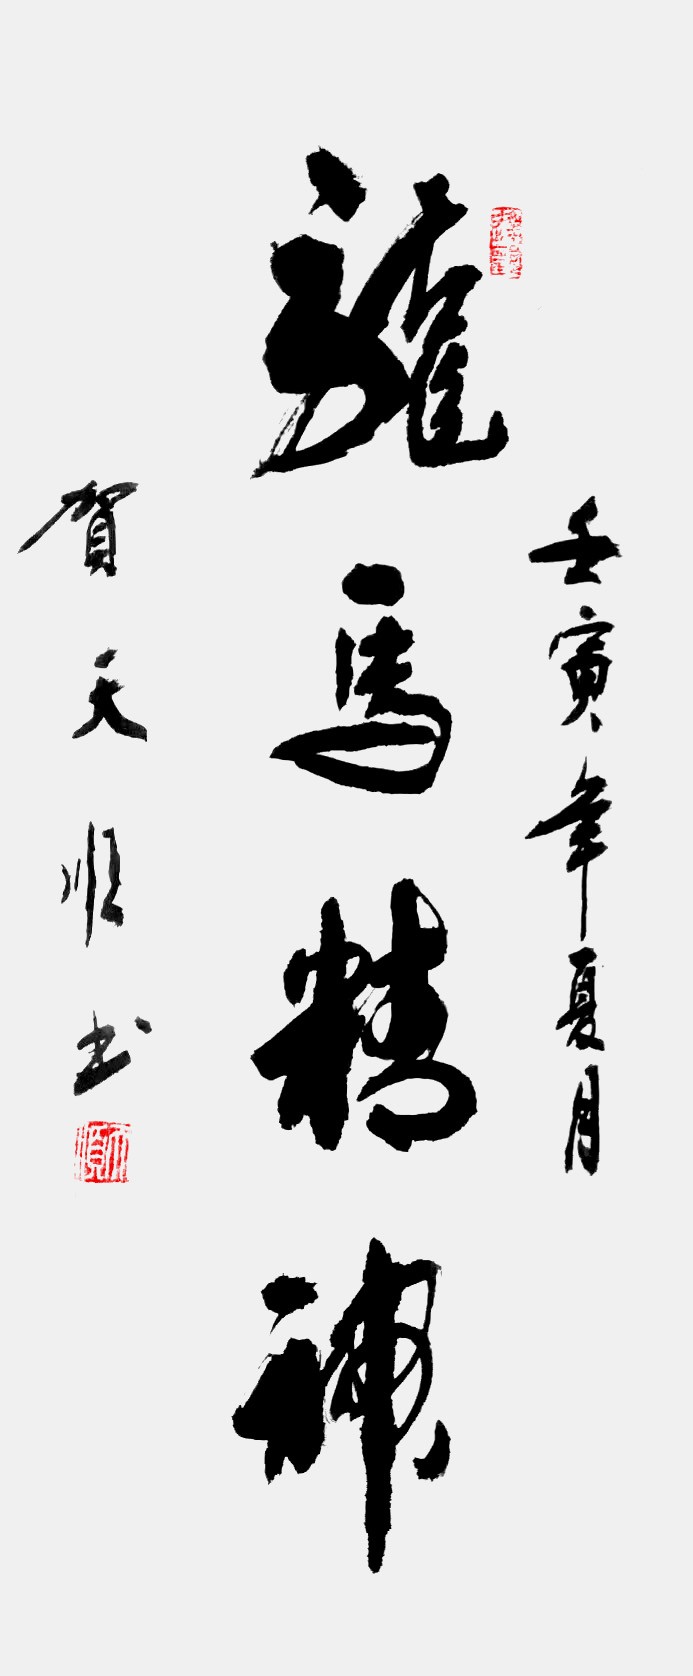 壬寅年夏月
龍馬精神
賀天順书